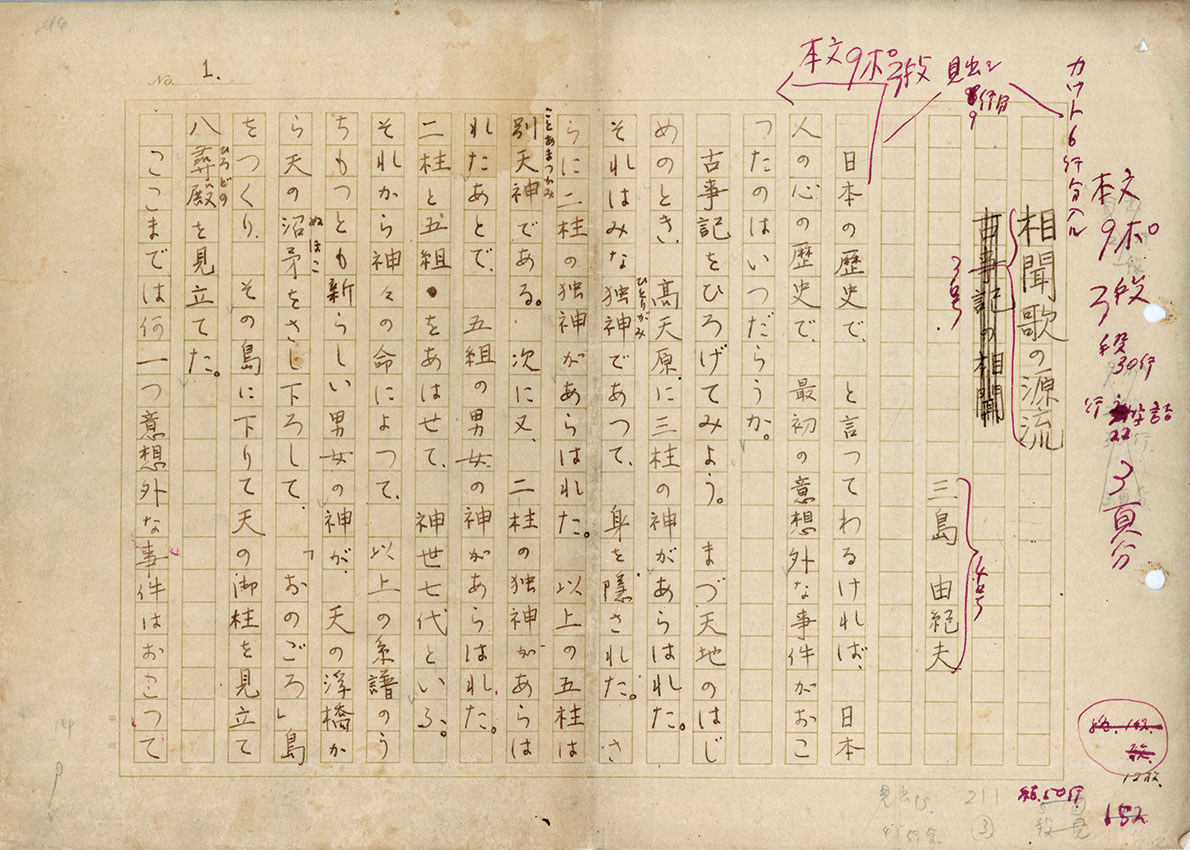 No. 1.
カット6行分入ル
本文
9ポ
3段
段
30行
22
3頁分
本文9ポ3段
見出シ
9行目
相聞歌の源流
古事記の相聞
3号
三島 由紀夫
4号
日本の歴史で、と言つてわるければ、日本
人の心の歴史で、最初の意想外な事件がおこ
つたのはいつだらうか。
古事記をひろげてみよう。まづ天地のはじ
めのとき、高天原に三柱の神があらはれた。
それはみな独神(ひとりがみ)であつて、身を隠された。さ
らに二柱の独神があらはれた。以上の五柱は
別天神(ことあまつかみ)である。次に又、二柱の独神があらは
れたあとで、五組の男女の神があらはれた。
二柱と五組をあはせて、神世七代といふ。
それから神々の命によつて、以上の系譜のう
ちもつとも新らしい男女の神が、天の浮橋か
ら天の沼矛(ぬほこ)をさし下ろして、「おのごろ」島
をつくり、その島に下りて天の御柱を見立て
八尋殿(ひろどの)を見立てた。
ここまでは何一つ意想外な事件はおこつて
12枚
152
211
③